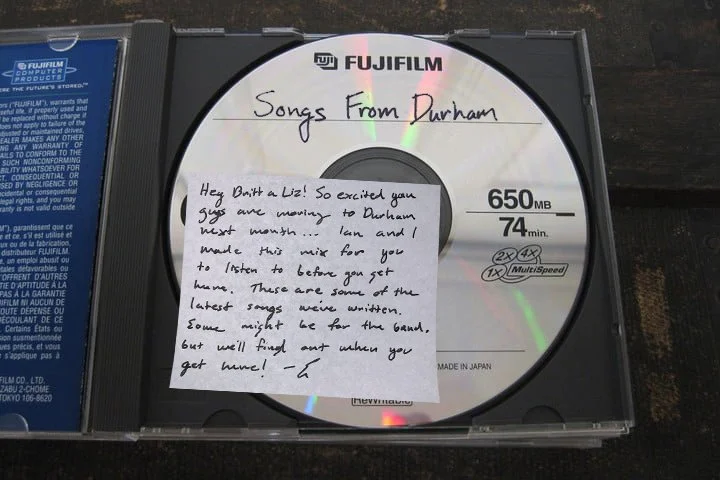 FUJIFILM
COMPUTER
PRODUCTS
ERE THE FUTURE'S STORED.™
ors ("FUJIFILM"), warrants that
seful life, if properly used and
be replaced without charge if
does not apply to failure of the
abusted or maintained drives.
DEALER MAKES ANY OTHER
NG ANY WARRANTY OF
AILS TO CONFORM TO THE
SUCH NONCONFORMING
IBILITY WHATSOEVER FOR
CT, CONSEQUENTIAL OR
SED BY NEGLIGENCE OR
incidental or consequential
legal rights, and you may
anty is not valid outside
M"), garantissent que ce
et ce, s'il est utilisé et
ux ou de la fabrication,
distributeur FUJIFILM.
un emploi abusif ou
tales défavorables ou
'OFFRENT D'AUTRES
TIE D'APTITUDE À LA
PAS À LA GARANTIE
FILM NI AUCUN DE
OUTE DÉPENSE OU
DÉCOULANT DE CE
Certains États ou
ion susmentionnée
ues précis, et vous
e s'applique pas à
FILM CO., LTD.
AZABU 2-CHOME
TOKYO 106-8620
FUJI FUJIFILM
Songs From Durham
650MB
74min.
2X 4X
1X MultiSpeed
MADE IN JAPAN
ReWritable
Hey Britt a Liz! So excited you
guys are moving to Durham
next month... Ian and I
made this mix for you
to listen to before you get
here. These are some of the
latest songs we've written.
Some might be for the band,
but we'll find out when you
get here! - E